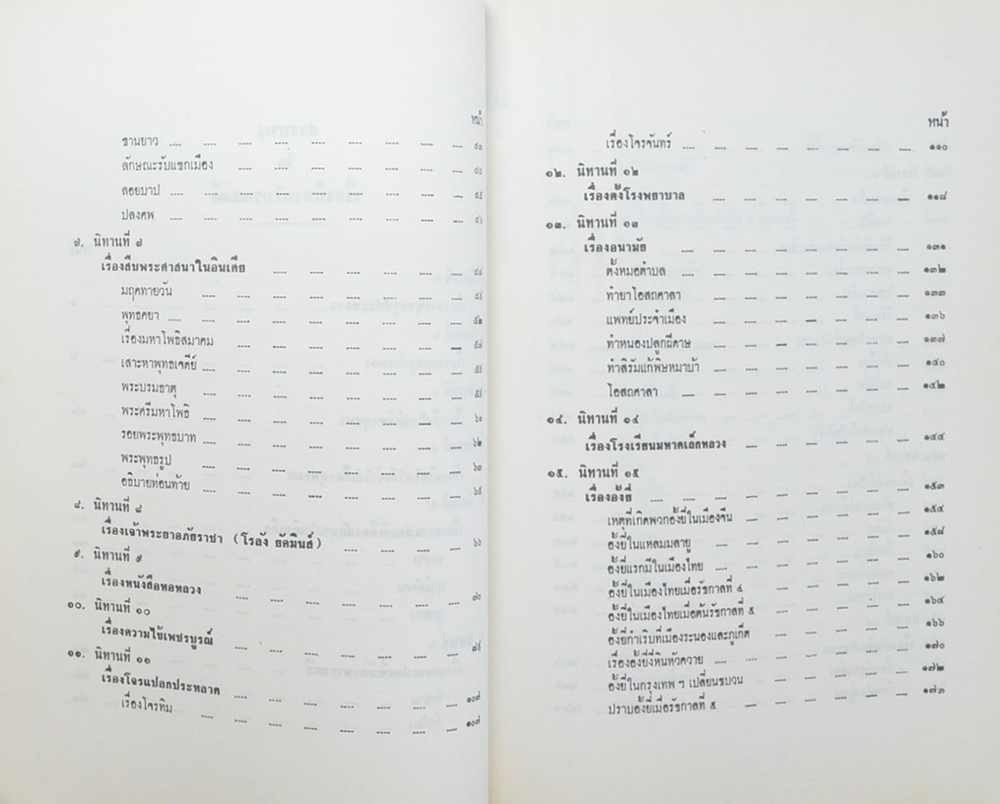 หน้า
ชานยาว .... .... .... .... .... .... .... ๔๓
ลักษณะรับแขกเมือง .... .... .... .... .... ....
ลอยบาป .... .... .... .... .... .... ....
ปลงศพ .... .... .... .... .... .... .... ๔๖
๗. นิทานที่ ๗
เรื่องสืบพระศาสนาในอินเดีย .... .... .... .... ....
มฤคทายวัน .... .... .... .... .... ....
พุทธคยา .... .... .... .... .... .... .... ๕๒
เรื่องมหาโพธิสมาคม .... .... .... .... .... .... ๕๗
เสาะหาพุทธเจดีย์ .... .... .... .... .... ....
พระบรมธาตุ .... .... .... .... .... ....
พระศรีมหาโพธิ .... .... .... .... .... .... ๖๑
รอยพระพุทธบาท .... .... .... .... .... .... ๖๒
พระพุทธรูป .... .... .... .... .... .... ๖๓
อธิบายท่อนท้าย .... .... .... .... .... .... ๖๕
๘. นิทานที่ ๘
เรื่องเจ้าพระยาอภัยราชา (โรลัง ยัคมินส์) .... .... .... .... ๖๖
๙. นิทานที่ ๙
เรื่องหนังสือหอหลวง .... .... .... .... .... .... ๗๐
๑๐. นิทานที่ ๑๐
เรื่องความไข้เพชรบูรณ์ .... .... .... .... .... ....
๑๑. นิทานที่ ๑๑
เรื่องโจรแปลกประหลาด .... .... .... .... .... .... ๑๐๗
เรื่องโจรทิม .... .... .... .... .... .... ๑๐๗
หน้า
เรื่องโจรจันทร์ .... .... .... .... .... .... .... ๑๑๐
๑๒. นิทานที่ ๑๒
เรื่องตั้งโรงพยาบาล .... .... .... .... .... .... ๑๑๘
๑๓. นิทานที่ ๑๓
เรื่องอนามัย .... .... .... .... .... .... .... ๑๓๑
ตั้งหมอตำบล .... .... .... .... .... .... ๑๓๒
ทำยาโอสถศาลา .... .... .... .... .... .... ๑๓๓
แพทย์ประจำเมือง .... .... .... .... .... .... ๑๓๖
ทำหนองปลูกฝีดาษ .... .... .... .... .... .... ๑๓๗
ทำสิรัมแก้พิษหมาบ้า .... .... .... .... .... .... ๑๔๐
โอสถศาลา .... .... .... .... .... .... .... ๑๔๒
๑๔. นิทานที่ ๑๔
เรื่องโรงเรียนมหาดเล็กหลวง .... .... .... .... .... ๑๔๔
๑๕. นิทานที่ ๑๕
เรื่องอั้งยี่ .... .... .... .... .... .... .... ๑๕๓
เหตุที่เกิดพวกอั้งยี่ในเมืองจีน .... .... .... .... .... ๑๕๔
อั้งยี่ในแหลมมลายู .... .... .... .... .... .... ๑๕๘
อั้งยี่แรกมีในเมืองไทย .... .... .... .... .... .... ๑๖๐
อั้งยี่ในเมืองไทยเมื่อรัชกาลที่ ๔ .... .... .... .... .... ๑๖๒
อั้งยี่ในเมืองไทยเมื่อต้นรัชกาลที่ ๕ .... .... .... .... ๑๖๔
อั้งยี่กำเริบที่เมืองระนองและภูเก็ต .... .... .... .... ๑๖๖
เรื่องอั้งยี่ที่หินหัวควาย .... .... .... .... .... ๑๗๐
อั้งยี่ในกรุงเทพ ฯ เปลี่ยนขบวน .... .... .... .... ๑๗๒
ปราบอั้งยี่เมื่อรัชกาลที่ ๕ .... .... .... .... .... ๑๗๓